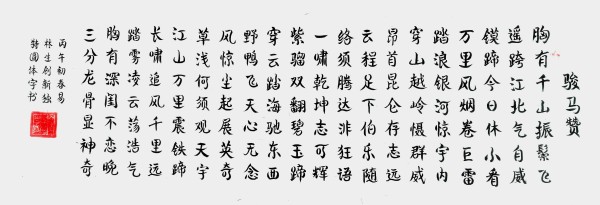 骏马赞
胸有千山振鬃飞
遥跨江北气自威
镆蹄今日休小看
万里风烟卷巨雷
踏浪银河惊宇内
穿山越岭慑群威
昂首昆仑存志远
云程足下伯乐随
络须腾达非狂语
一啸乾坤志可辉
紫骝双翻碧玉蹄
穿云踏海驰东西
野鸭飞天心无念
风惊尘起展英奇
草浅何须观天宇
江山万里震铁蹄
长啸追风千里远
踏雾凌云荡浩气
胸有深闺不恋晚
三分龙骨显神奇
丙午初春易
林生创新独
特圆体字书